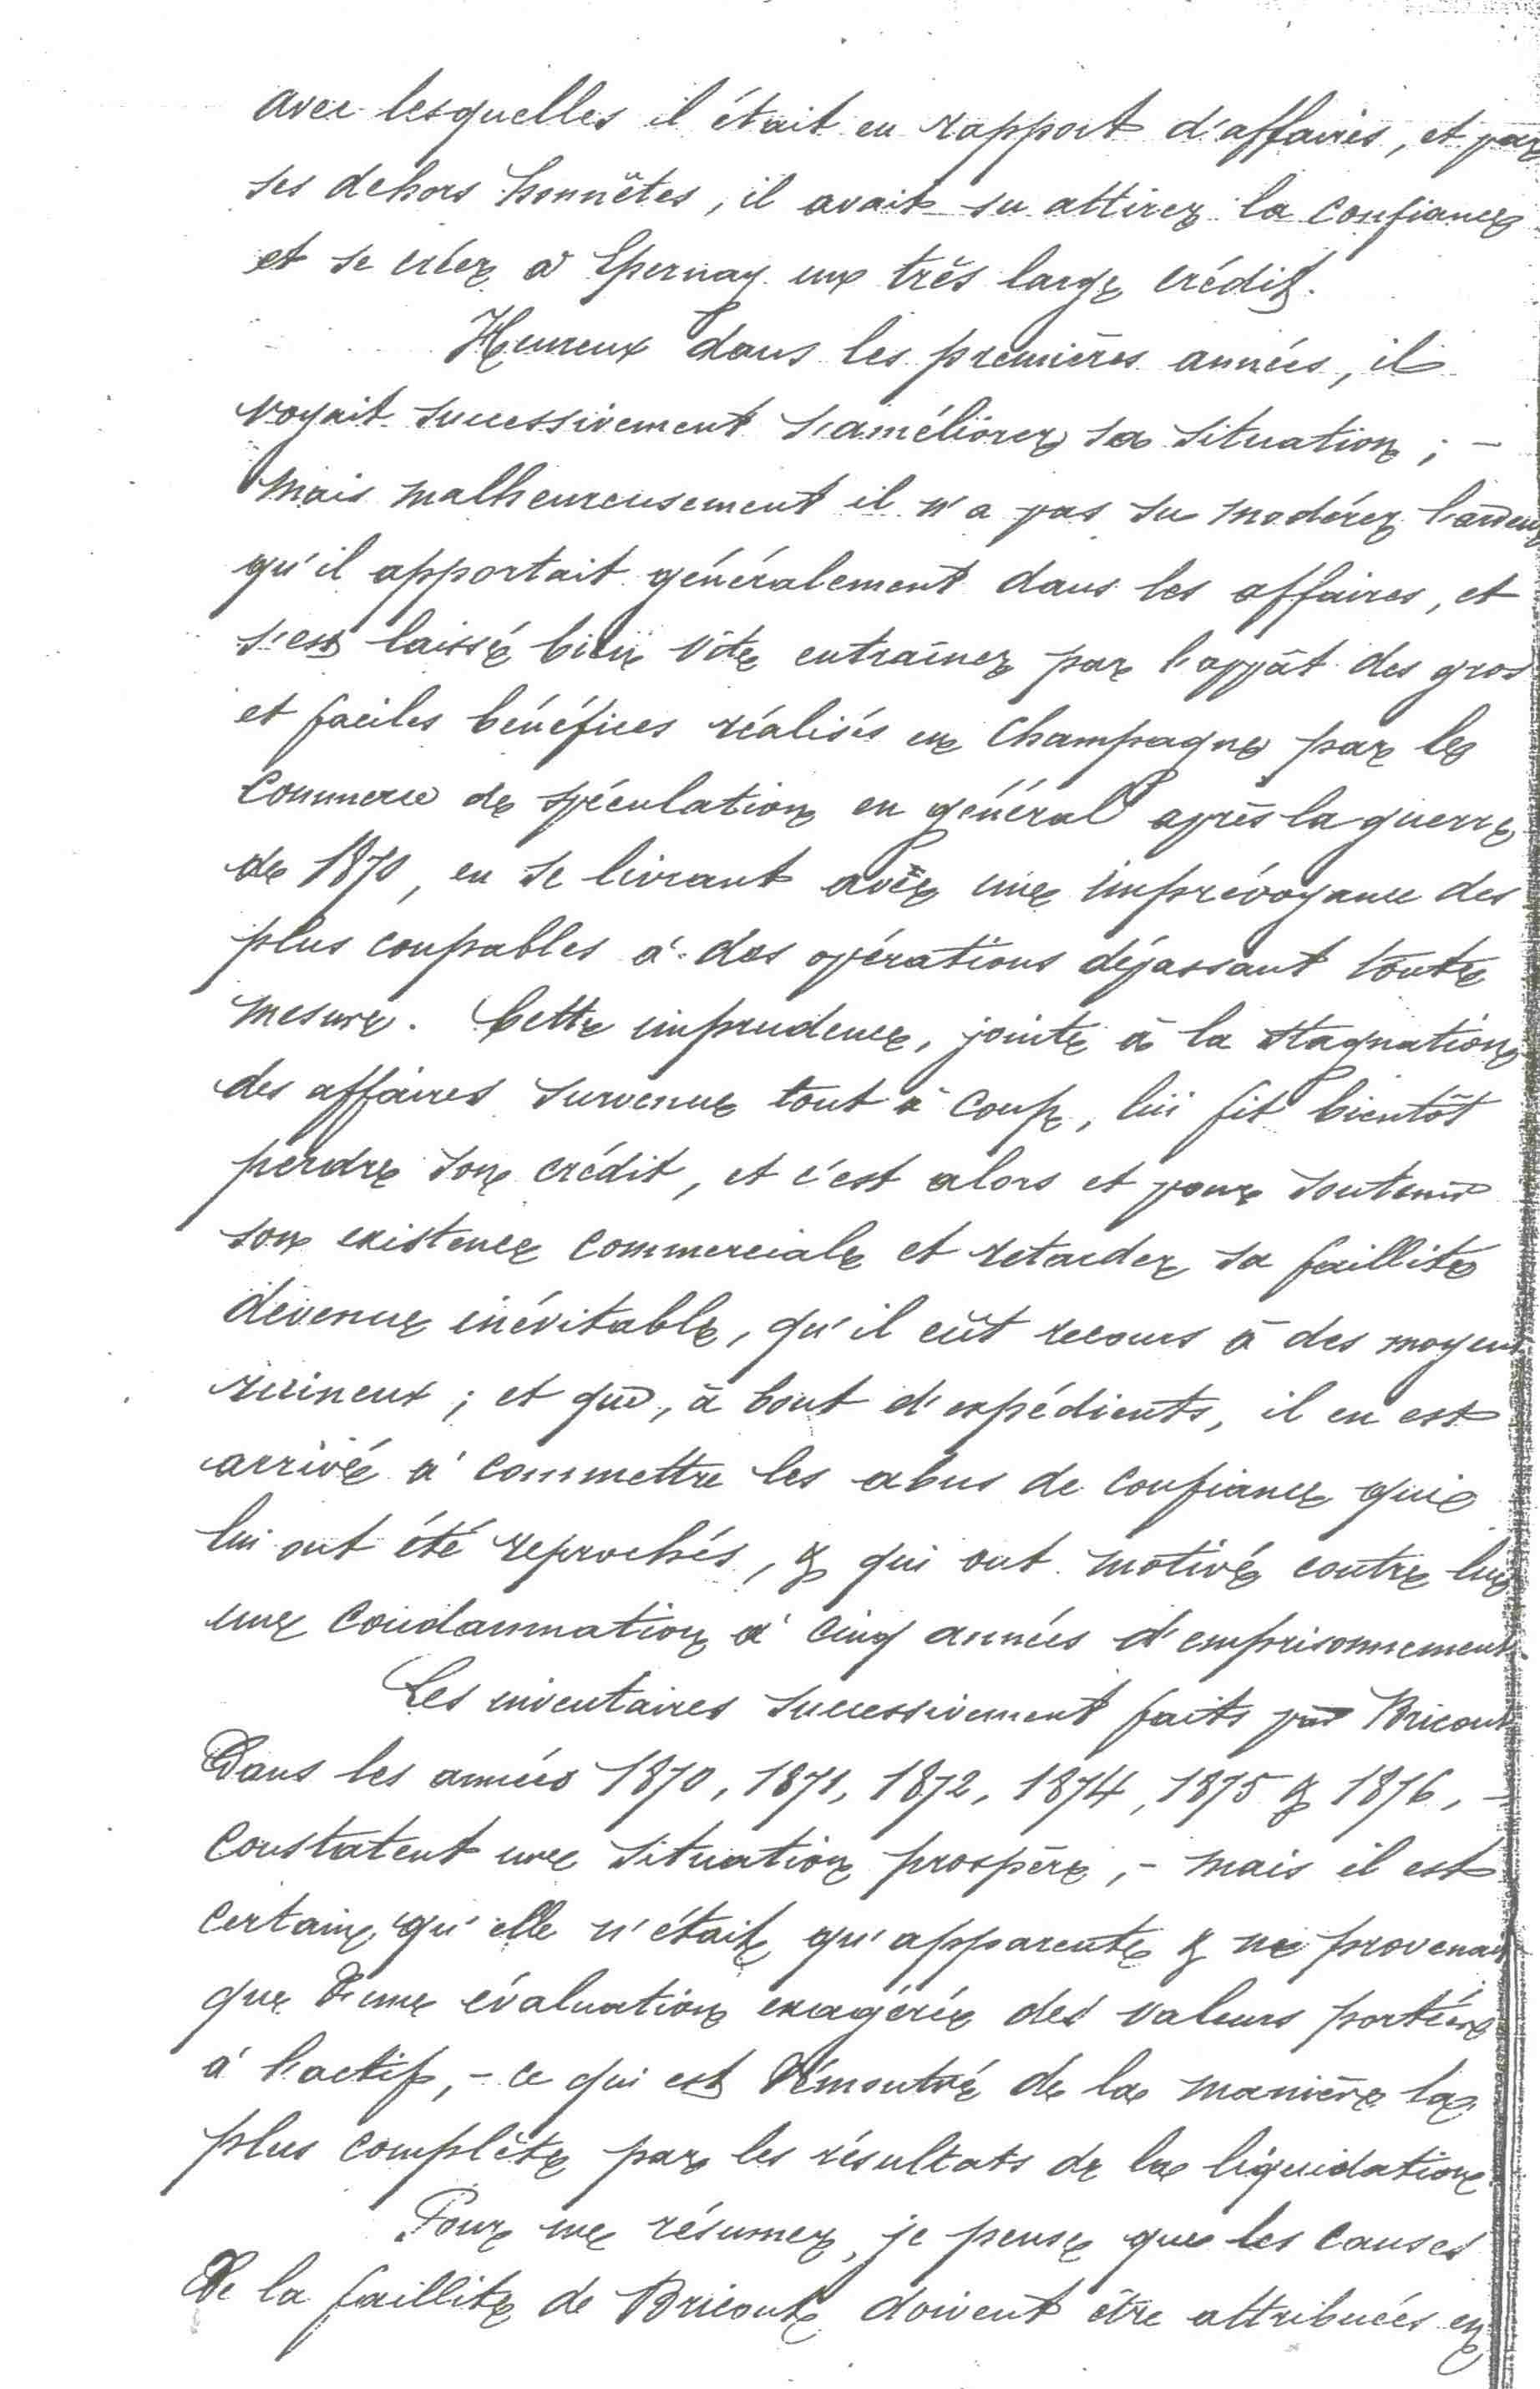 avec lesquelles il était en rapport d'affaires, et par
ses dehors honnêtes, il avait su attirer la confiance
et se créer à Epernay un très large crédit.
Heureux dans les premières années, il
voyait successivement s'améliorer sa situation ; -
mais malheureusement il n'a pas su modérer l'ardeur
qu'il apportait généralement dans les affaires, et
s'est laissé bien vite entraîner par l'appât des gros
et faciles bénéfices réalisés en Champagne par le
commerce de spéculation en général après la guerre
de 1870, en se livrant avec une imprévoyance des
plus coupables à des opérations dépassant toute
mesure. Cette imprudence, jointe à la stagnation
des affaires survenue tout à coup, lui fit bientôt
perdre son crédit, et c'est alors et pour soutenir
son existence commerciale et retarder sa faillite
devenue inévitable, qu'il eût recours à des moyens
ruineux ; et que, à bout d'expédients, il en est
arrivé à commettre les abus de confiance qui
lui ont été reprochés, & qui ont motivé contre lui
une condamnation à cinq années d'emprisonnement.
Les inventaires successivement faits par Bricout
Dans les années 1870, 1871, 1872, 1874, 1875 & 1876, -
constatent une situation prospère, - mais il est
certain qu'elle n'était qu'apparente & ne provenait
que d'une évaluation exagérée des valeurs portées
à l'actif, - ce qui est démontré de la manière la
plus complète par les résultats de la liquidation.
Pour me résumer, je pense que les causes
De la faillite de Bricout doivent être attribuées en